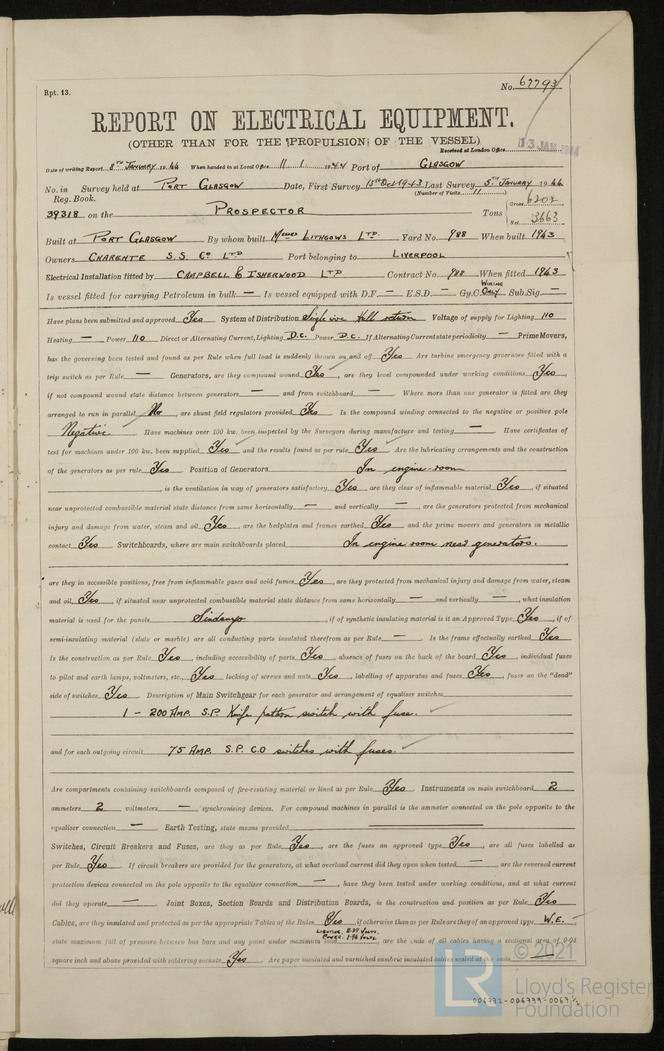 Rpt. 13.
No. 67793
REPORT ON ELECTRICAL EQUIPMENT.
(OTHER THAN FOR THE PROPULSION OF THE VESSEL)
Received at London Office 13 JAN 1944
Date of writing Report 8TH JANUARY 1944 When handed in at Local Office 11 1 1944 Port of GLASGOW
No. in Survey held at PORT GLASGOW Date, First Survey 15th Oct 1943 Last Survey 5TH JANUARY 1944
Reg. Book. (Number of Visits 11 )
39318 on the PROSPECTOR Tons { Gross 6202
Net 3663
Built at PORT GLASGOW By whom built MESSRS LITHGOWS LTD. Yard No. 988 When built 1943
Owners CHARENTE S.S. CO LTD Port belonging to LIVERPOOL
Electrical Installation fitted by CAMPBELL & ISHERWOOD LTD Contract No. 988 When fitted 1943
Is vessel fitted for carrying Petroleum in bulk — Is vessel equipped with D.F. — E.S.D. — Gy.C. WIRING ONLY Sub.Sig. —
Have plans been submitted and approved Yes System of Distribution Single wire Hull return Voltage of supply for Lighting 110
Heating — Power 110 Direct or Alternating Current, Lighting D.C. Power D.C. If Alternating Current state periodicity — Prime Movers,
has the governing been tested and found as per Rule when full load is suddenly thrown on and off Yes Are turbine emergency governors fitted with a
trip switch as per Rule — Generators, are they compound wound Yes, are they level compounded under working conditions Yes,
if not compound wound state distance between generators — and from switchboard — Where more than one generator is fitted are they
arranged to run in parallel No, are shunt field regulators provided Yes Is the compound winding connected to the negative or positive pole
Negative Have machines over 100 kw. been inspected by the Surveyors during manufacture and testing — Have certificates of
test for machines under 100 kw. been supplied Yes and the results found as per rule Yes Are the lubricating arrangements and the construction
of the generators as per rule Yes Position of Generators In engine-room
, is the ventilation in way of generators satisfactory Yes are they clear of inflammable material Yes, if situated
near unprotected combustible material state distance from same horizontally — and vertically —, are the generators protected from mechanical
injury and damage from water, steam and oil Yes, are the bedplates and frames earthed Yes and the prime movers and generators in metallic
contact Yes Switchboards, where are main switchboards placed In engine room near generators.
are they in accessible positions, free from inflammable gases and acid fumes Yes, are they protected from mechanical injury and damage from water, steam
and oil Yes, if situated near unprotected combustible material state distance from same horizontally — and vertically —, what insulation
material is used for the panels Sindanyo, if of synthetic insulating material is it an Approved Type Yes, if of
semi-insulating material (slate or marble) are all conducting parts insulated therefrom as per Rule — Is the frame effectually earthed Yes
Is the construction as per Rule Yes, including accessibility of parts Yes, absence of fuses on the back of the board Yes, individual fuses
to pilot and earth lamps, voltmeters, etc., Yes locking of screws and nuts Yes, labelling of apparatus and fuses Yes, fuses on the "dead"
side of switches Yes Description of Main Switchgear for each generator and arrangement of equaliser switches
1 - 200 AMP. S.P. Knife pattern switch with fuse.
and for each outgoing circuit 75 AMP. S.P. C.O switches with fuses.
Are compartments containing switchboards composed of fire-resisting material or lined as per Rule Yes Instruments on main switchboard 2
ammeters 2 voltmeters — synchronising devices. For compound machines in parallel is the ammeter connected on the pole opposite to the
equaliser connection — Earth Testing, state means provided
Switches, Circuit Breakers and Fuses, are they as per Rule Yes, are the fuses an approved type Yes, are all fuses labelled as
per Rule Yes If circuit breakers are provided for the generators, at what overload current did they open when tested —, are the reversed current
protection devices connected on the pole opposite to the equaliser connection —, have they been tested under working conditions, and at what current
did they operate — Joint Boxes, Section Boards and Distribution Boards, is the construction and position as per Rule Yes
Cables, are they insulated and protected as per the appropriate Tables of the Rules Yes, if otherwise than as per Rule are they of an approved type W.E.
state maximum fall of pressure between bus bars and any point under maximum load LIGHTING POWER, are the ends of all cables having a sectional area of 0.04
square inch and above provided with soldering sockets Yes. Are paper insulated and varnished cambric insulated cables sealed at the ends —
© 2021
LR
Lloyd's Register
Foundation